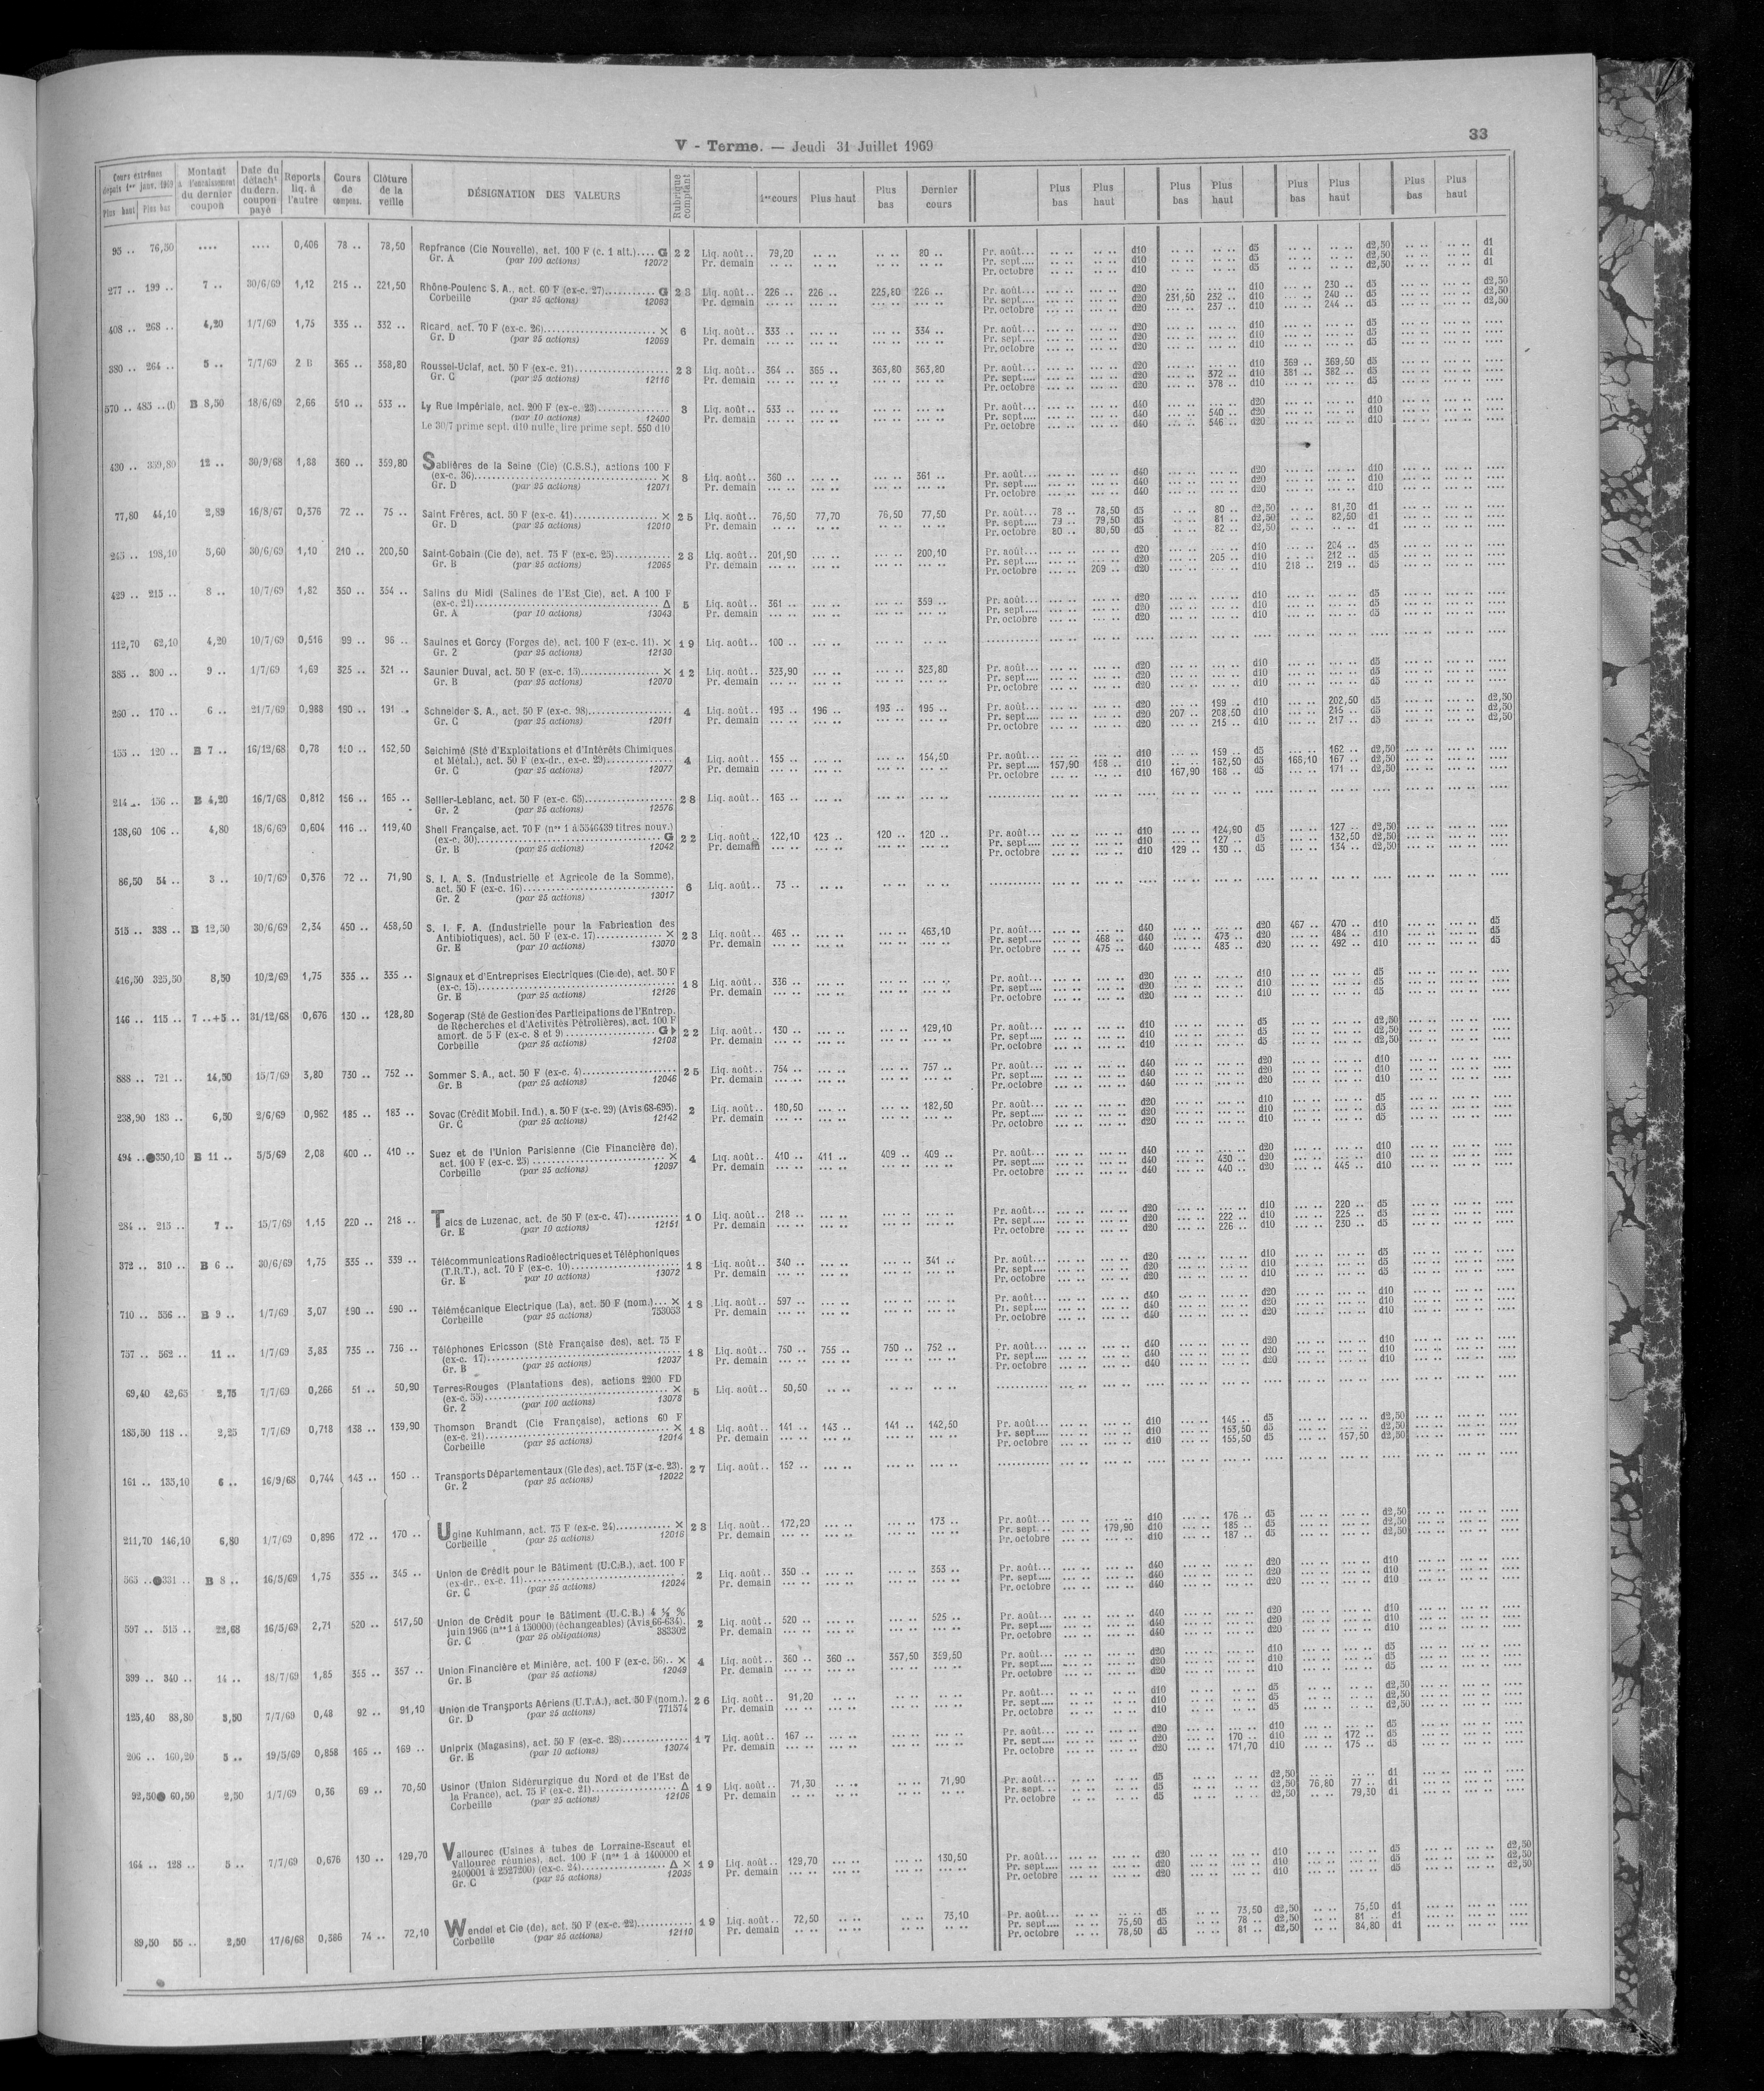 V - Terme. — Jeudi 31 Juillet 1969
33
Cours extrêmes depuis 1er janv. 1969 Plus haut Plus bas | Montant à l'encaissement du dernier coupon | Date du détacht du dern. coupon payé | Reports liq. à l'autre | Cours de compens. | Clôture de la veille | DÉSIGNATION DES VALEURS | Rubrique comptant | 1er cours | Plus haut | Plus bas | Dernier cours | Plus bas | Plus haut | Plus bas | Plus haut | Plus bas | Plus haut | Plus bas | Plus haut
95 .. 76,50 .... .... 0,406 78 .. 78,50 Repfrance (Cie Nouvelle), act. 100 F (c. 1 alt.).... G 22 Liq. août.. 79,20 .. .. .. .. 80 .. Pr. août... d10 d5 d2,50 d1
Gr. A (par 100 actions) 12072 Pr. demain Pr. sept.... d10 d5 d2,50 d1
Pr. octobre d10 d5 d2,50 d1
277 .. 199 .. 7 .. 30/6/69 1,12 215 .. 221,50 Rhône-Poulenc S. A., act. 60 F (ex-c. 27)..... G 23 Liq. août.. 226 .. 226 .. 225,80 226 .. Pr. août... d20 d10 230 .. d5 d2,50
Corbeille (par 25 actions) 12063 Pr. demain Pr. sept.... d20 231,50 232 .. d10 240 .. d5 d2,50
Pr. octobre d20 237 .. d10 244 .. d5 d2,50
408 .. 268 .. 4,20 1/7/69 1,75 335 .. 332 .. Ricard, act. 70 F (ex-c. 26)..... × 6 Liq. août.. 333 .. 334 .. Pr. août... d20 d10 d5
Gr. D (par 25 actions) 12059 Pr. demain Pr. sept.... d20 d10 d5
Pr. octobre d20 d10 d5
380 .. 264 .. 5 .. 7/7/69 2 B 365 .. 358,80 Roussel-Uclaf, act. 50 F (ex-c. 21)..... 23 Liq. août.. 364 .. 365 .. 363,80 363,80 Pr. août... d20 d10 369 .. 369,50 d5
Gr. C (par 25 actions) 12116 Pr. demain Pr. sept.... d20 372 .. d10 381 .. 382 .. d5
Pr. octobre d20 378 .. d10 d5
570 .. 485 ..(l) B 8,50 18/6/69 2,66 510 .. 533 .. Ly Rue Impériale, act. 200 F (ex-c. 23)..... 3 Liq. août.. 533 .. Pr. août... d40 d20 d10
(par 10 actions) 12400 Pr. demain Pr. sept.... d40 540 .. d20 d10
Le 30/7 prime sept. d10 nulle, lire prime sept. 550 d10 Pr. octobre d40 546 .. d20 d10
430 .. 339,80 12 .. 30/9/68 1,88 360 .. 359,80 Sablières de la Seine (Cie) (C.S.S.), actions 100 F
(ex-c. 36)..... × 8 Liq. août.. 360 .. 361 .. Pr. août... d40 d20 d10
Gr. D (par 25 actions) 12071 Pr. demain Pr. sept.... d40 d20 d10
Pr. octobre d40 d20 d10
77,80 44,10 2,89 16/8/67 0,376 72 .. 75 .. Saint Frères, act. 50 F (ex-c. 41)..... × 25 Liq. août.. 76,50 77,70 76,50 77,50 Pr. août... 78 .. 78,50 d5 80 .. d2,50 81,30 d1
Gr. D (par 25 actions) 12010 Pr. demain Pr. sept.... 79 .. 79,50 d5 81 .. d2,50 82,50 d1
Pr. octobre 80 .. 80,50 d5 82 .. d2,50 d1
245 .. 198,10 5,60 30/6/69 1,10 210 .. 200,50 Saint-Gobain (Cie de), act. 75 F (ex-c. 25)..... 23 Liq. août.. 201,90 200,10 Pr. août... d20 d10 204 .. d5
Gr. B (par 25 actions) 12065 Pr. demain Pr. sept.... d20 205 .. d10 212 .. d5
Pr. octobre 209 .. d20 d10 218 .. 219 .. d5
429 .. 215 .. 8 .. 10/7/69 1,82 350 .. 354 .. Salins du Midi (Salines de l'Est Cie), act. A 100 F
(ex-c. 21)..... Δ 5 Liq. août.. 361 .. 359 .. Pr. août... d20 d10 d5
Gr. A (par 10 actions) 13043 Pr. demain Pr. sept.... d20 d10 d5
Pr. octobre d20 d10 d5
112,70 62,10 4,20 10/7/69 0,516 99 .. 96 .. Saulnes et Gorcy (Forges de), act. 100 F (ex-c. 11). × 19 Liq. août.. 100 ..
Gr. 2 (par 25 actions) 12130
385 .. 300 .. 9 .. 1/7/69 1,69 325 .. 321 .. Saunier Duval, act. 50 F (ex-c. 15)..... × 12 Liq. août.. 323,90 323,80 Pr. août... d20 d10 d5
Gr. B (par 25 actions) 12070 Pr. demain Pr. sept.... d20 d10 d5
Pr. octobre d20 d10 d5
260 .. 170 .. 6 .. 21/7/69 0,988 190 .. 191 .. Schneider S. A., act. 50 F (ex-c. 98)..... 4 Liq. août.. 193 .. 196 .. 193 .. 195 .. Pr. août... d20 199 .. d10 202,50 d5 d2,50
Gr. C (par 25 actions) 12011 Pr. demain Pr. sept.... d20 207 .. 208,50 d10 215 .. d5 d2,50
Pr. octobre d20 215 .. d10 217 .. d5 d2,50
155 .. 120 .. B 7 .. 16/12/68 0,78 150 .. 152,50 Seichimé (Sté d'Exploitations et d'Intérêts Chimiques
et Métal.), act. 50 F (ex-dr., ex-c. 29)..... 4 Liq. août.. 155 .. 154,50 Pr. août... d10 159 .. d5 162 .. d2,50
Gr. C (par 25 actions) 12077 Pr. demain Pr. sept.... 157,90 158 .. d10 162,50 d5 166,10 167 .. d2,50
Pr. octobre d10 167,90 168 .. d5 171 .. d2,50
214 .. 156 .. B 4,20 16/7/68 0,812 156 .. 165 .. Sellier-Leblanc, act. 50 F (ex-c. 65)..... 28 Liq. août.. 163 ..
Gr. 2 (par 25 actions) 12576
138,60 106 .. 4,80 18/6/69 0,604 116 .. 119,40 Shell Française, act. 70 F (nos 1 à 5346439 titres nouv.)
(ex-c. 30)..... G 22 Liq. août.. 122,10 123 .. 120 .. 120 .. Pr. août... d10 124,90 d5 127 .. d2,50
Gr. B (par 25 actions) 12042 Pr. demain Pr. sept.... d10 127 .. d5 132,50 d2,50
Pr. octobre d10 129 .. 130 .. d5 134 .. d2,50
86,50 54 .. 3 .. 10/7/69 0,376 72 .. 71,90 S. I. A. S. (Industrielle et Agricole de la Somme),
act. 50 F (ex-c. 16)..... 6 Liq. août.. 73 ..
Gr. 2 (par 25 actions) 13017
515 .. 338 .. B 12,50 30/6/69 2,34 450 .. 458,50 S. I. F. A. (Industrielle pour la Fabrication des
Antibiotiques), act. 50 F (ex-c. 17)..... × 23 Liq. août.. 463 .. 463,10 Pr. août... d40 d20 467 .. 470 .. d10 d5
Gr. E (par 10 actions) 13070 Pr. demain Pr. sept.... 468 .. d40 473 .. d20 484 .. d10 d5
Pr. octobre 475 .. d40 483 .. d20 492 .. d10 d5
416,50 325,50 8,50 10/2/69 1,75 335 .. 335 .. Signaux et d'Entreprises Electriques (Cie de), act. 50 F
(ex-c. 15)..... 18 Liq. août.. 336 .. Pr. août... d20 d10 d5
Gr. E (par 25 actions) 12126 Pr. demain Pr. sept.... d20 d10 d5
Pr. octobre d20 d10 d5
146 .. 115 .. 7 ..+5 .. 31/12/68 0,676 130 .. 128,80 Sogerap (Sté de Gestion des Participations de l'Entrep.
de Recherches et d'Activités Pétrolières), act. 100 F
amort. de 5 F (ex-c. 8 et 9)..... G 22 Liq. août.. 130 .. 129,10 Pr. août... d10 d5 d2,50
Corbeille (par 25 actions) 12108 Pr. demain Pr. sept.... d10 d5 d2,50
Pr. octobre d10 d5 d2,50
888 .. 721 .. 14,50 15/7/69 3,80 730 .. 752 .. Sommer S. A., act. 50 F (ex-c. 4)..... 25 Liq. août.. 754 .. 757 .. Pr. août... d40 d20 d10
Gr. B (par 25 actions) 12046 Pr. demain Pr. sept.... d40 d20 d10
Pr. octobre d40 d20 d10
238,90 183 .. 6,50 2/6/69 0,962 185 .. 183 .. Sovac (Crédit Mobil. Ind.), a. 50 F (x-c. 29) (Avis 68-695). 2 Liq. août.. 180,50 182,50 Pr. août... d20 d10 d5
Gr. C (par 25 actions) 12142 Pr. demain Pr. sept.... d20 d10 d5
Pr. octobre d20 d10 d5
494 .. ●350,10 B 11 .. 5/5/69 2,08 400 .. 410 .. Suez et de l'Union Parisienne (Cie Financière de),
act. 100 F (ex-c. 25)..... × 4 Liq. août.. 410 .. 411 .. 409 .. 409 .. Pr. août... d40 d20 d10
Corbeille (par 25 actions) 12097 Pr. demain Pr. sept.... d40 430 .. d20 d10
Pr. octobre d40 440 .. d20 445 .. d10
284 .. 215 .. 7 .. 15/7/69 1,15 220 .. 218 .. Talcs de Luzenac, act. de 50 F (ex-c. 47)..... 10 Liq. août.. 218 .. Pr. août... d20 d10 220 .. d5
Gr. E (par 10 actions) 12151 Pr. demain Pr. sept.... d20 222 .. d10 225 .. d5
Pr. octobre d20 226 .. d10 230 .. d5
372 .. 310 .. B 6 .. 30/6/69 1,75 335 .. 339 .. Télécommunications Radioélectriques et Téléphoniques
(T.R.T.), act. 70 F (ex-c. 10)..... 18 Liq. août.. 340 .. 341 .. Pr. août... d20 d10 d5
Gr. E par 10 actions) 13072 Pr. demain Pr. sept.... d20 d10 d5
Pr. octobre d20 d10 d5
710 .. 556 .. B 9 .. 1/7/69 3,07 590 .. 590 .. Télémécanique Electrique (La), act. 50 F (nom.)... × 18 Liq. août.. 597 .. Pr. août... d40 d20 d10
Corbeille (par 25 actions) 753053 Pr. demain Pr. sept.... d40 d20 d10
Pr. octobre d40 d20 d10
757 .. 562 .. 11 .. 1/7/69 3,83 735 .. 756 .. Téléphones Ericsson (Sté Française des), act. 75 F
(ex-c. 17)..... 18 Liq. août.. 750 .. 755 .. 750 .. 752 .. Pr. août... d40 d20 d10
Gr. B (par 25 actions) 12037 Pr. demain Pr. sept.... d40 d20 d10
Pr. octobre d40 d20 d10
69,40 42,65 2,75 7/7/69 0,266 51 .. 50,90 Terres-Rouges (Plantations des), actions 2200 FD
(ex-c. 55)..... × 5 Liq. août.. 50,50
Gr. 2 (par 100 actions) 13078
185,50 118 .. 2,25 7/7/69 0,718 138 .. 139,90 Thomson Brandt (Cie Française), actions 60 F
(ex-c. 21)..... × 18 Liq. août.. 141 .. 143 .. 141 .. 142,50 Pr. août... d10 145 .. d5 d2,50
Corbeille (par 25 actions) 12014 Pr. demain Pr. sept.... d10 153,50 d5 d2,50
Pr. octobre d10 155,50 d5 157,50 d2,50
161 .. 135,10 6 .. 16/9/68 0,744 143 .. 150 .. Transports Départementaux (Gle des), act. 75 F (x-c. 23). 27 Liq. août.. 152 ..
Gr. 2 (par 25 actions) 12022
211,70 146,10 6,80 1/7/69 0,896 172 .. 170 .. Ugine Kuhlmann, act. 75 F (ex-c. 24)..... × 23 Liq. août.. 172,20 173 .. Pr. août... d10 176 .. d5 d2,50
Corbeille (par 25 actions) 12018 Pr. demain Pr. sept... 179,90 d10 185 .. d5 d2,50
Pr. octobre d10 187 .. d5 d2,50
565 .. ●331 .. B 8 .. 16/5/69 1,75 335 .. 345 .. Union de Crédit pour le Bâtiment (U.C.B.), act. 100 F
(ex-dr., ex-c. 11)..... 2 Liq. août.. 350 .. 353 .. Pr. août... d40 d20 d10
Gr. C (par 25 actions) 12024 Pr. demain Pr. sept.... d40 d20 d10
Pr. octobre d40 d20 d10
597 .. 515 .. 22,68 16/5/69 2,71 520 .. 517,50 Union de Crédit pour le Bâtiment (U.C.B.) 4 ½ %
juin 1966 (nos 1 à 150000) (échangeables) (Avis 66-634). 2 Liq. août.. 520 .. 525 .. Pr. août... d40 d20 d10
Gr. C (par 25 obligations) 383302 Pr. demain Pr. sept.... d40 d20 d10
Pr. octobre d40 d20 d10
399 .. 340 .. 14 .. 18/7/69 1,85 355 .. 357 .. Union Financière et Minière, act. 100 F (ex-c. 56).. × 4 Liq. août.. 360 .. 360 .. 357,50 359,50 Pr. août... d20 d10 d5
Gr. B (par 25 actions) 12049 Pr. demain Pr. sept.... d20 d10 d5
Pr. octobre d20 d10 d5
125,40 88,80 3,50 7/7/69 0,48 92 .. 91,10 Union de Transports Aériens (U.T.A.), act. 50 F (nom.). 26 Liq. août.. 91,20 Pr. août... d10 d5 d2,50
Gr. D (par 25 actions) 771574 Pr. demain Pr. sept.... d10 d5 d2,50
Pr. octobre d10 d5 d2,50
206 .. 160,20 5 .. 19/5/69 0,858 165 .. 169 .. Uniprix (Magasins), act. 50 F (ex-c. 28)..... 17 Liq. août.. 167 .. Pr. août... d20 d10 d5
Gr. E (par 10 actions) 13074 Pr. demain Pr. sept.... d20 170 .. d10 172 .. d5
Pr. octobre d20 171,70 d10 175 .. d5
92,50● 60,50 2,50 1/7/69 0,36 69 .. 70,50 Usinor (Union Sidérurgique du Nord et de l'Est de
la France), act. 75 F (ex-c. 21)..... Δ 19 Liq. août.. 71,30 71,90 Pr. août... d5 d2,50 d1
Corbeille (par 25 actions) 12106 Pr. demain Pr. sept... d5 d2,50 76,80 77 .. d1
Pr. octobre d5 d2,50 79,30 d1
164 .. 128 .. 5 .. 7/7/69 0,676 130 .. 129,70 Vallourec (Usines à tubes de Lorraine-Escaut et
Vallourec réunies), act. 100 F (nos 1 à 1400000 et
2400001 à 2527200) (ex-c. 24)..... Δ × 19 Liq. août.. 129,70 130,50 Pr. août... d20 d10 d5 d2,50
Gr. C (par 25 actions) 12035 Pr. demain Pr. sept.... d20 d10 d5 d2,50
Pr. octobre d20 d10 d5 d2,50
89,50 55 .. 2,50 17/6/68 0,386 74 .. 72,10 Wendel et Cie (de), act. 50 F (ex-c. 22)..... 19 Liq. août.. 72,50 73,10 Pr. août... d5 73,50 d2,50 75,50 d1
Corbeille (par 25 actions) 12110 Pr. demain Pr. sept.... 75,50 d5 78 .. d2,50 81 .. d1
Pr. octobre 78,50 d5 81 .. d2,50 84,80 d1